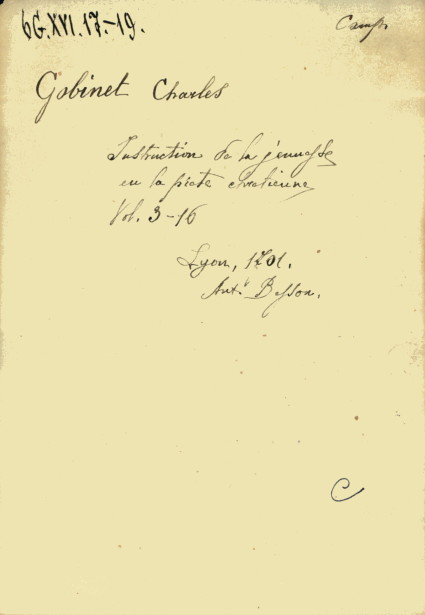 6G.XVI.17.-19.
Camp.
Gobinet Charles
Instruction de la jeunesse
en la pieté chretienne
Vol. 3-16
Lyon, 1701.
Ant. Besson.
C